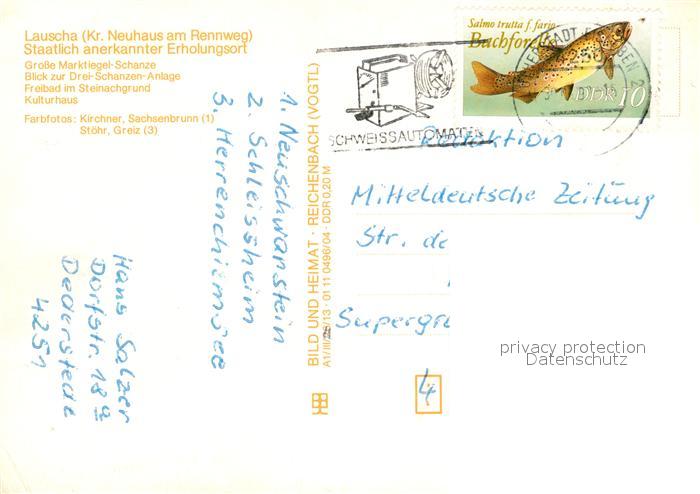 Lauscha (Kr. Neuhaus am Rennweg)
Staatlich anerkannter Erholungsort
Große Marktiegel-Schanze
Blick zur Drei-Schanzen-Anlage
Freibad im Steinachgrund
Kulturhaus
Farbfotos: Kirchner, Sachsenbrunn (1)
Stöhr, Greiz (3)
1. Neuschwanstein
2. Schleissheim
3. Herrenchiemsee
Hans Salzer
Dorfstr. 18a
Dederstedt
4251
BILD UND HEIMAT · REICHENBACH (VOGTL)
01 11 0496/04 · DDR 0,20 M
SCHWEISSAUTOMATEN
Salmo trutta f. fario
Bachforelle
DDR 10
Redaktion
Mitteldeutsche Zeitung
Str. de
Supergr
4
privacy protection
Datenschutz